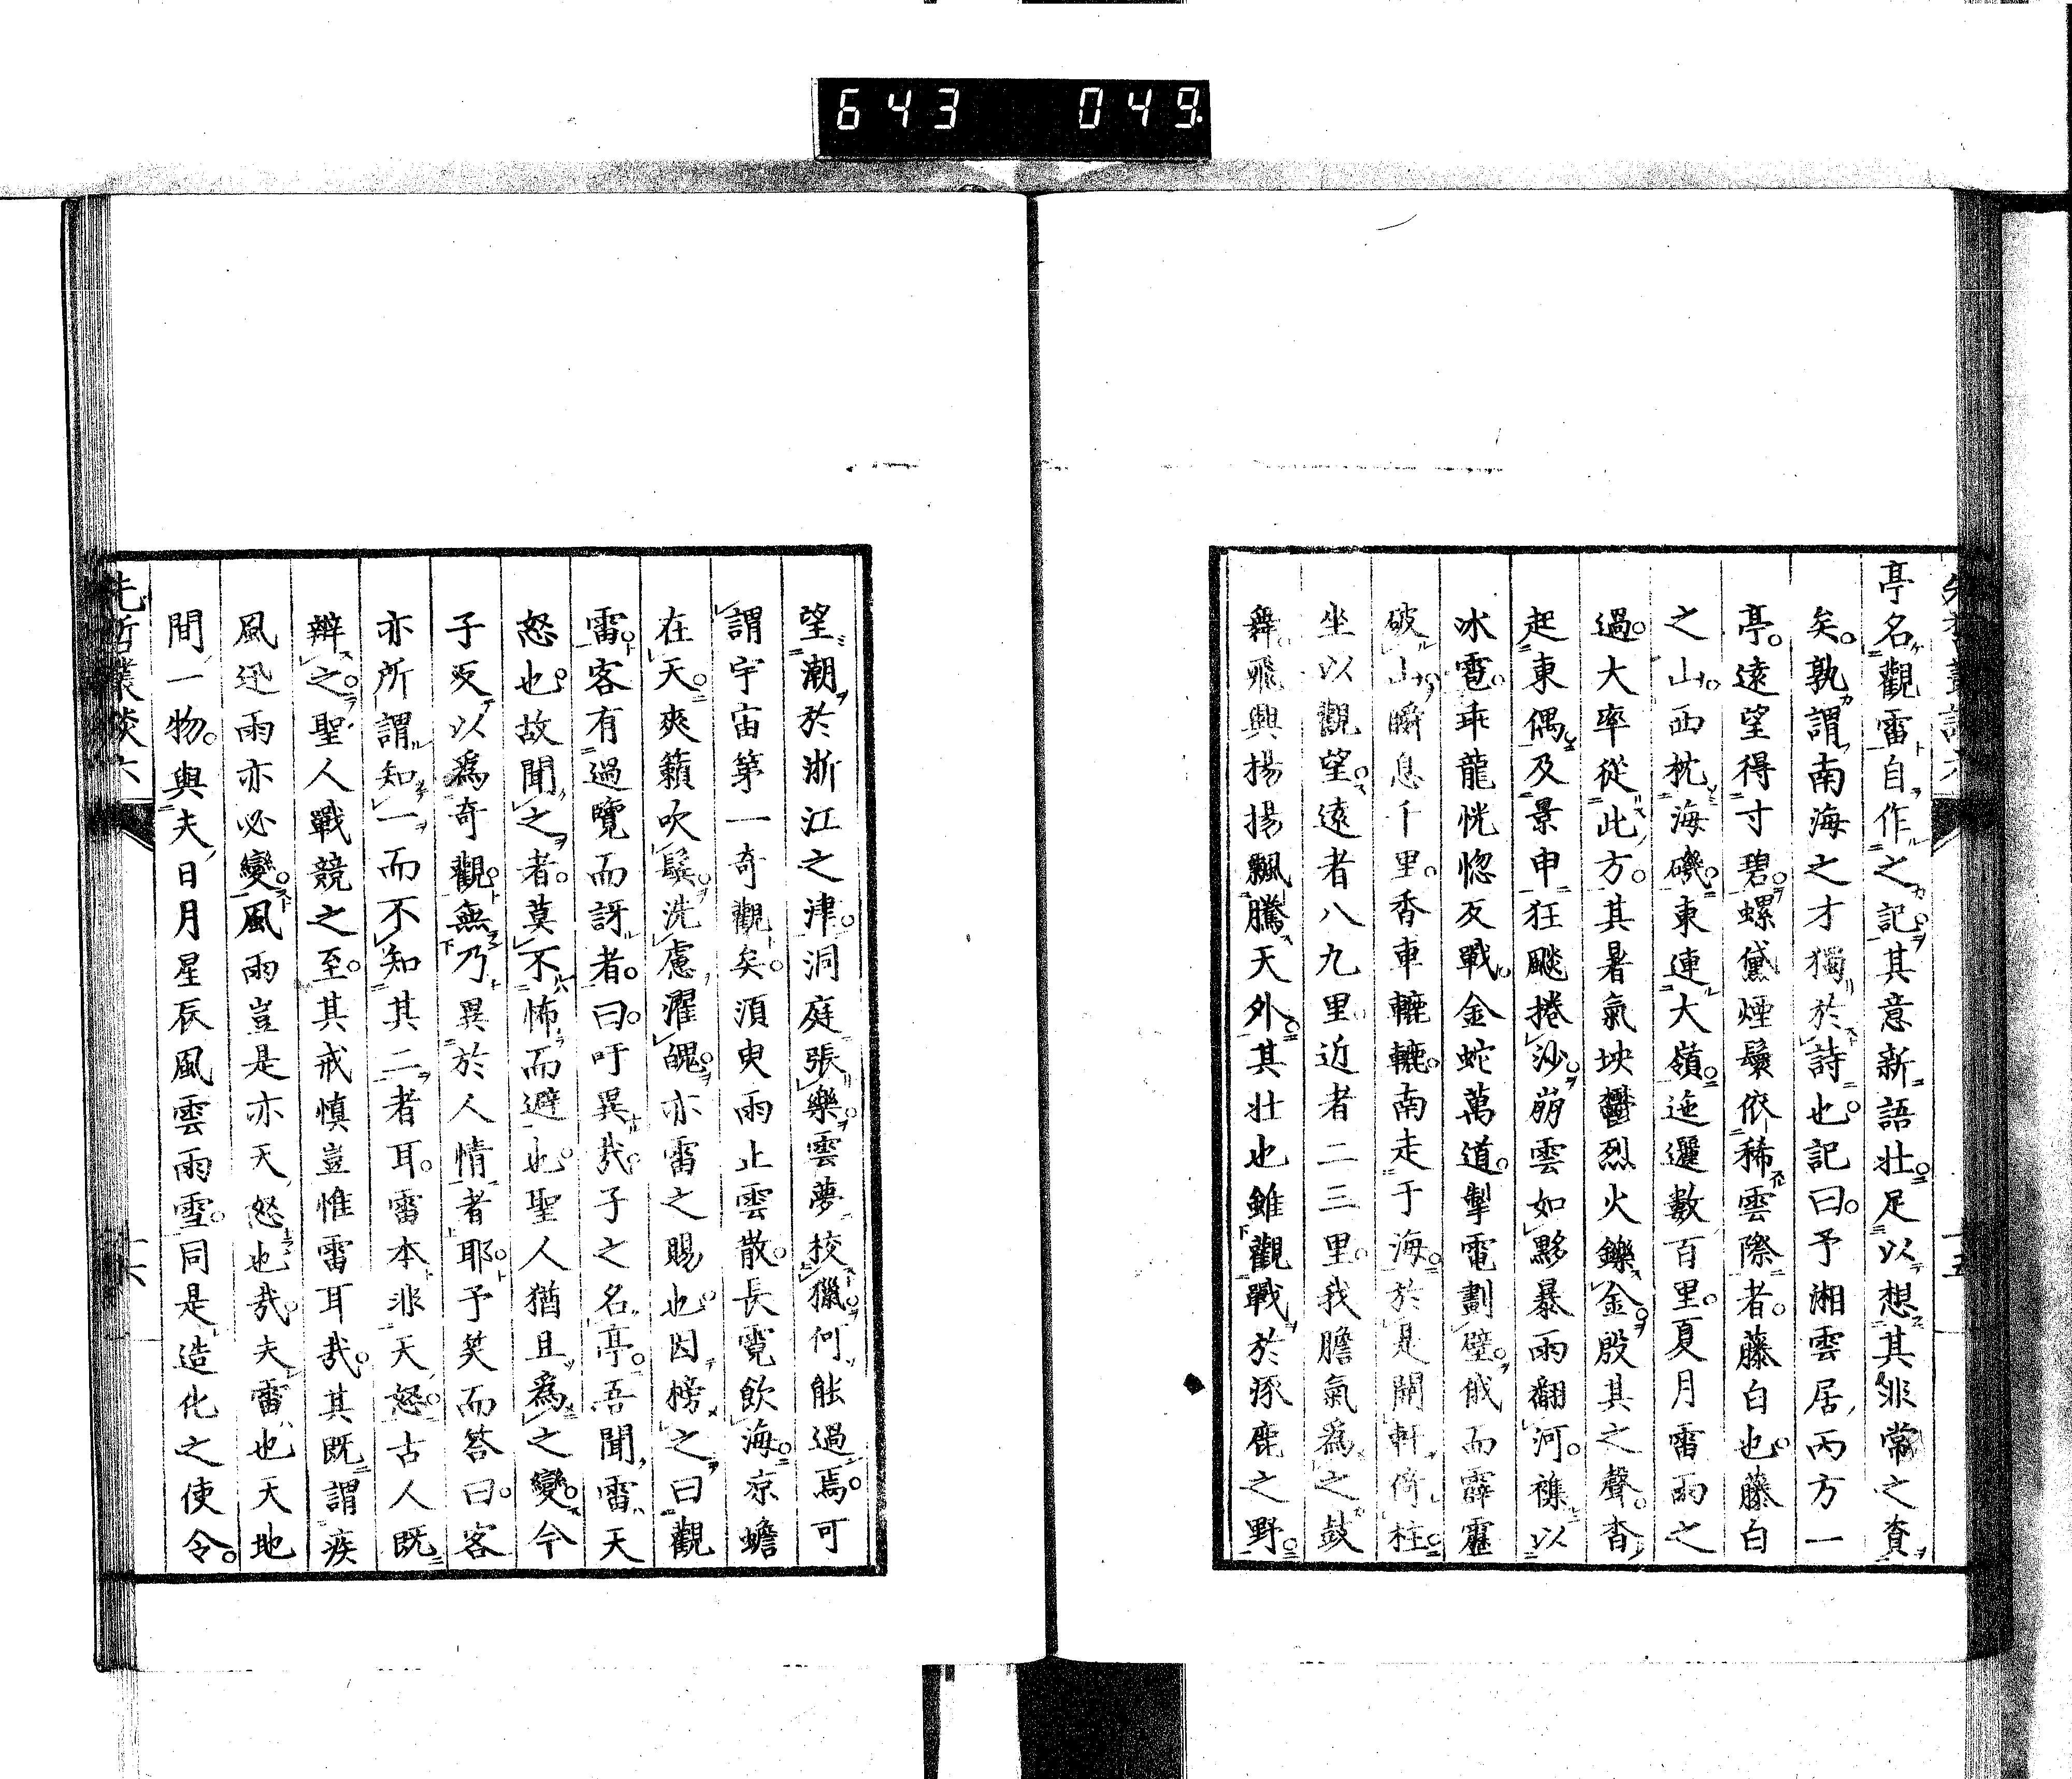 643 049
亭名觀雷自作之記其意新語壯足以想其非常之資
矣。孰謂南海之才獨於詩也。記曰。予湘雲居丙方一
亭。遠望得寸碧。螺黛煙鬟依稀雲際者。藤白也。藤白
之山。西枕海磯。東連大嶺。迤邐數百里。夏月雷雨之
過。大率從此方。其暑氣坱鬱烈火鑠金。殷其之聲。杳
起東偶。及景申狂飈捲沙。崩雲如夥暴雨翻河。襍以
冰雹。乖龍恍惚反戰。金蛇萬道。掣電劃壁。俄而霹靂
破山。瞬息千里。香車轆轆。南走于海。於是開軒倚柱。
坐以觀望。遠者八九里近者二三里。我膽氣爲之鼓
舞。飛興揚揚飄騰天外。其壯也雖觀戰於涿鹿之野。
望潮於浙江之津。洞庭張樂。雲夢挍獵。何能過焉。可
謂宇宙第一奇觀矣。須臾雨止雲散。長霓飲海。凉蟾
在天。爽籟吹鬟。洗慮濯魄。亦雷之賜也。因榜之曰觀
雷。客有過覽而訝者。曰。吁異哉。子之名亭。吾聞雷天
怒也。故聞之者。莫不怖而避也。聖人猶且爲之變。今
子反以爲奇觀。無乃異於人情者耶。予笑而答曰。客
亦所謂知一而不知其二者耳。雷本非天怒。古人既
辨之。聖人戰競之至。其戒慎豈惟雷耳哉。其既謂疾
風迅雨亦必變。風雨豈是亦天怒也哉。夫雷也天地
間一物。與夫日月星辰風雲雨雪。同是造化之使令。
先哲叢談六
十六